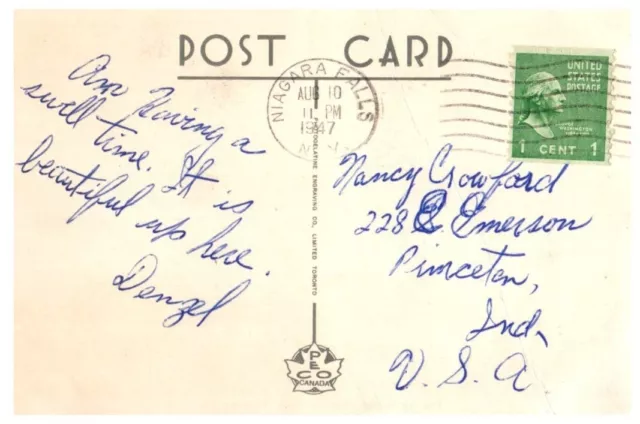 POST CARD
NIAGARA FALLS
AUG 10
11 PM
1947
N.Y.
UNITED
STATES
POSTAGE
WASHINGTON
1 CENT 1
Am Having a
swell time. It is
beautiful up here.
Denzel
Nancy Crowford
228 E Emerson
Princeton,
Ind,
U. S. A
PHOTOGELATINE ENGRAVING CO., LIMITED TORONTO
PECO
CANADA